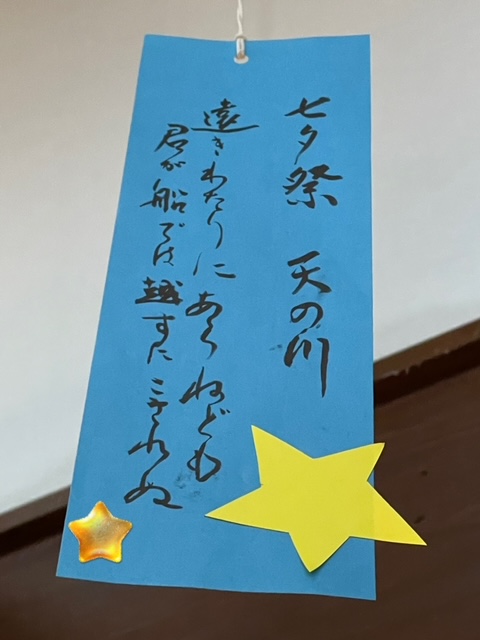 七夕祭 天の川
遠きわたりにあらねども
君が船では越すにこされぬ